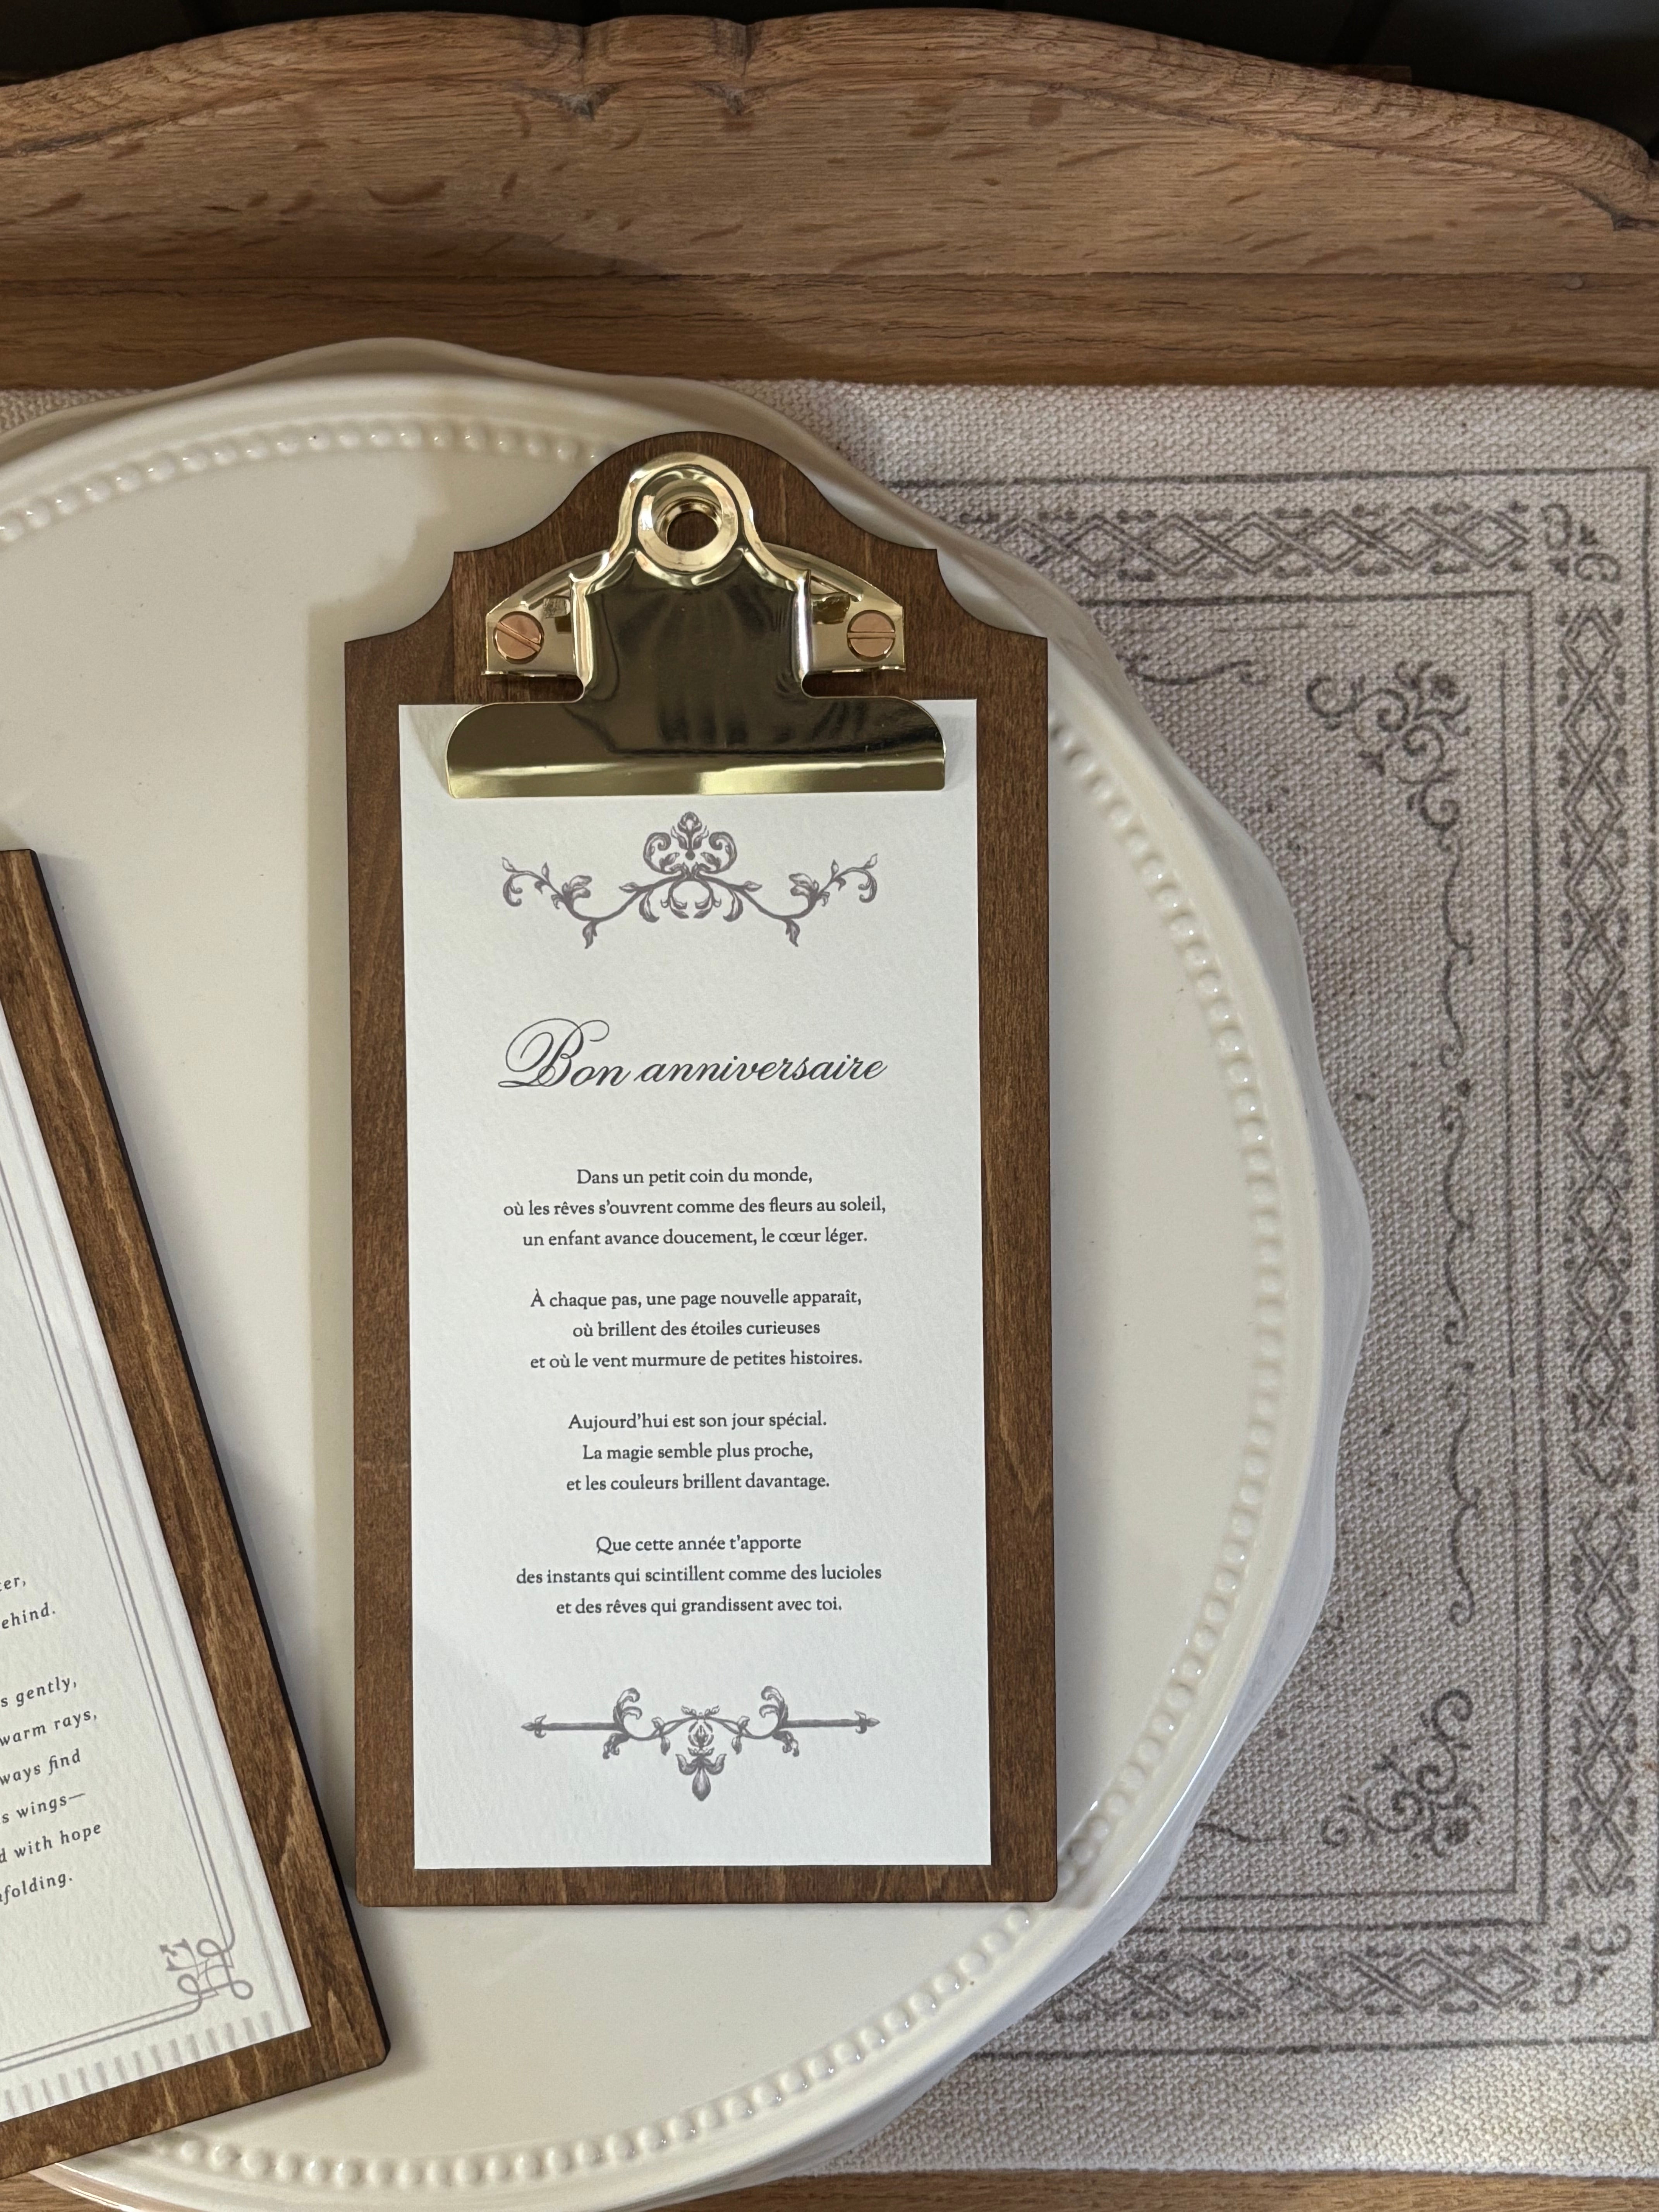 Bon anniversaire
Dans un petit coin du monde,
où les rêves s'ouvrent comme des fleurs au soleil,
un enfant avance doucement, le cœur léger.
À chaque pas, une page nouvelle apparaît,
où brillent des étoiles curieuses
et où le vent murmure de petites histoires.
Aujourd'hui est son jour spécial.
La magie semble plus proche,
et les couleurs brillent davantage.
Que cette année t'apporte
des instants qui scintillent comme des lucioles
et des rêves qui grandissent avec toi.
gently,
warm rays,
find
wings—
with hope